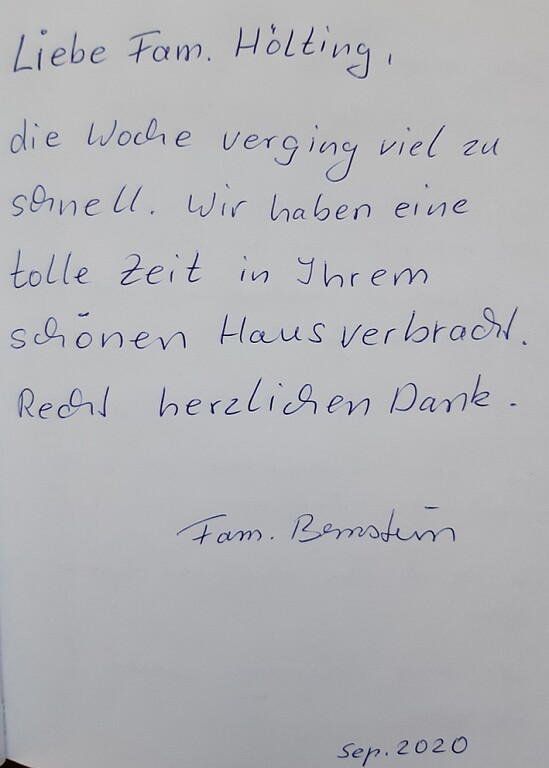 Liebe Fam. Hölting,
die Woche verging viel zu
schnell. Wir haben eine
tolle Zeit in Ihrem
schönen Haus verbracht.
Recht herzlichen Dank.
Fam. Bernstein
Sep. 2020